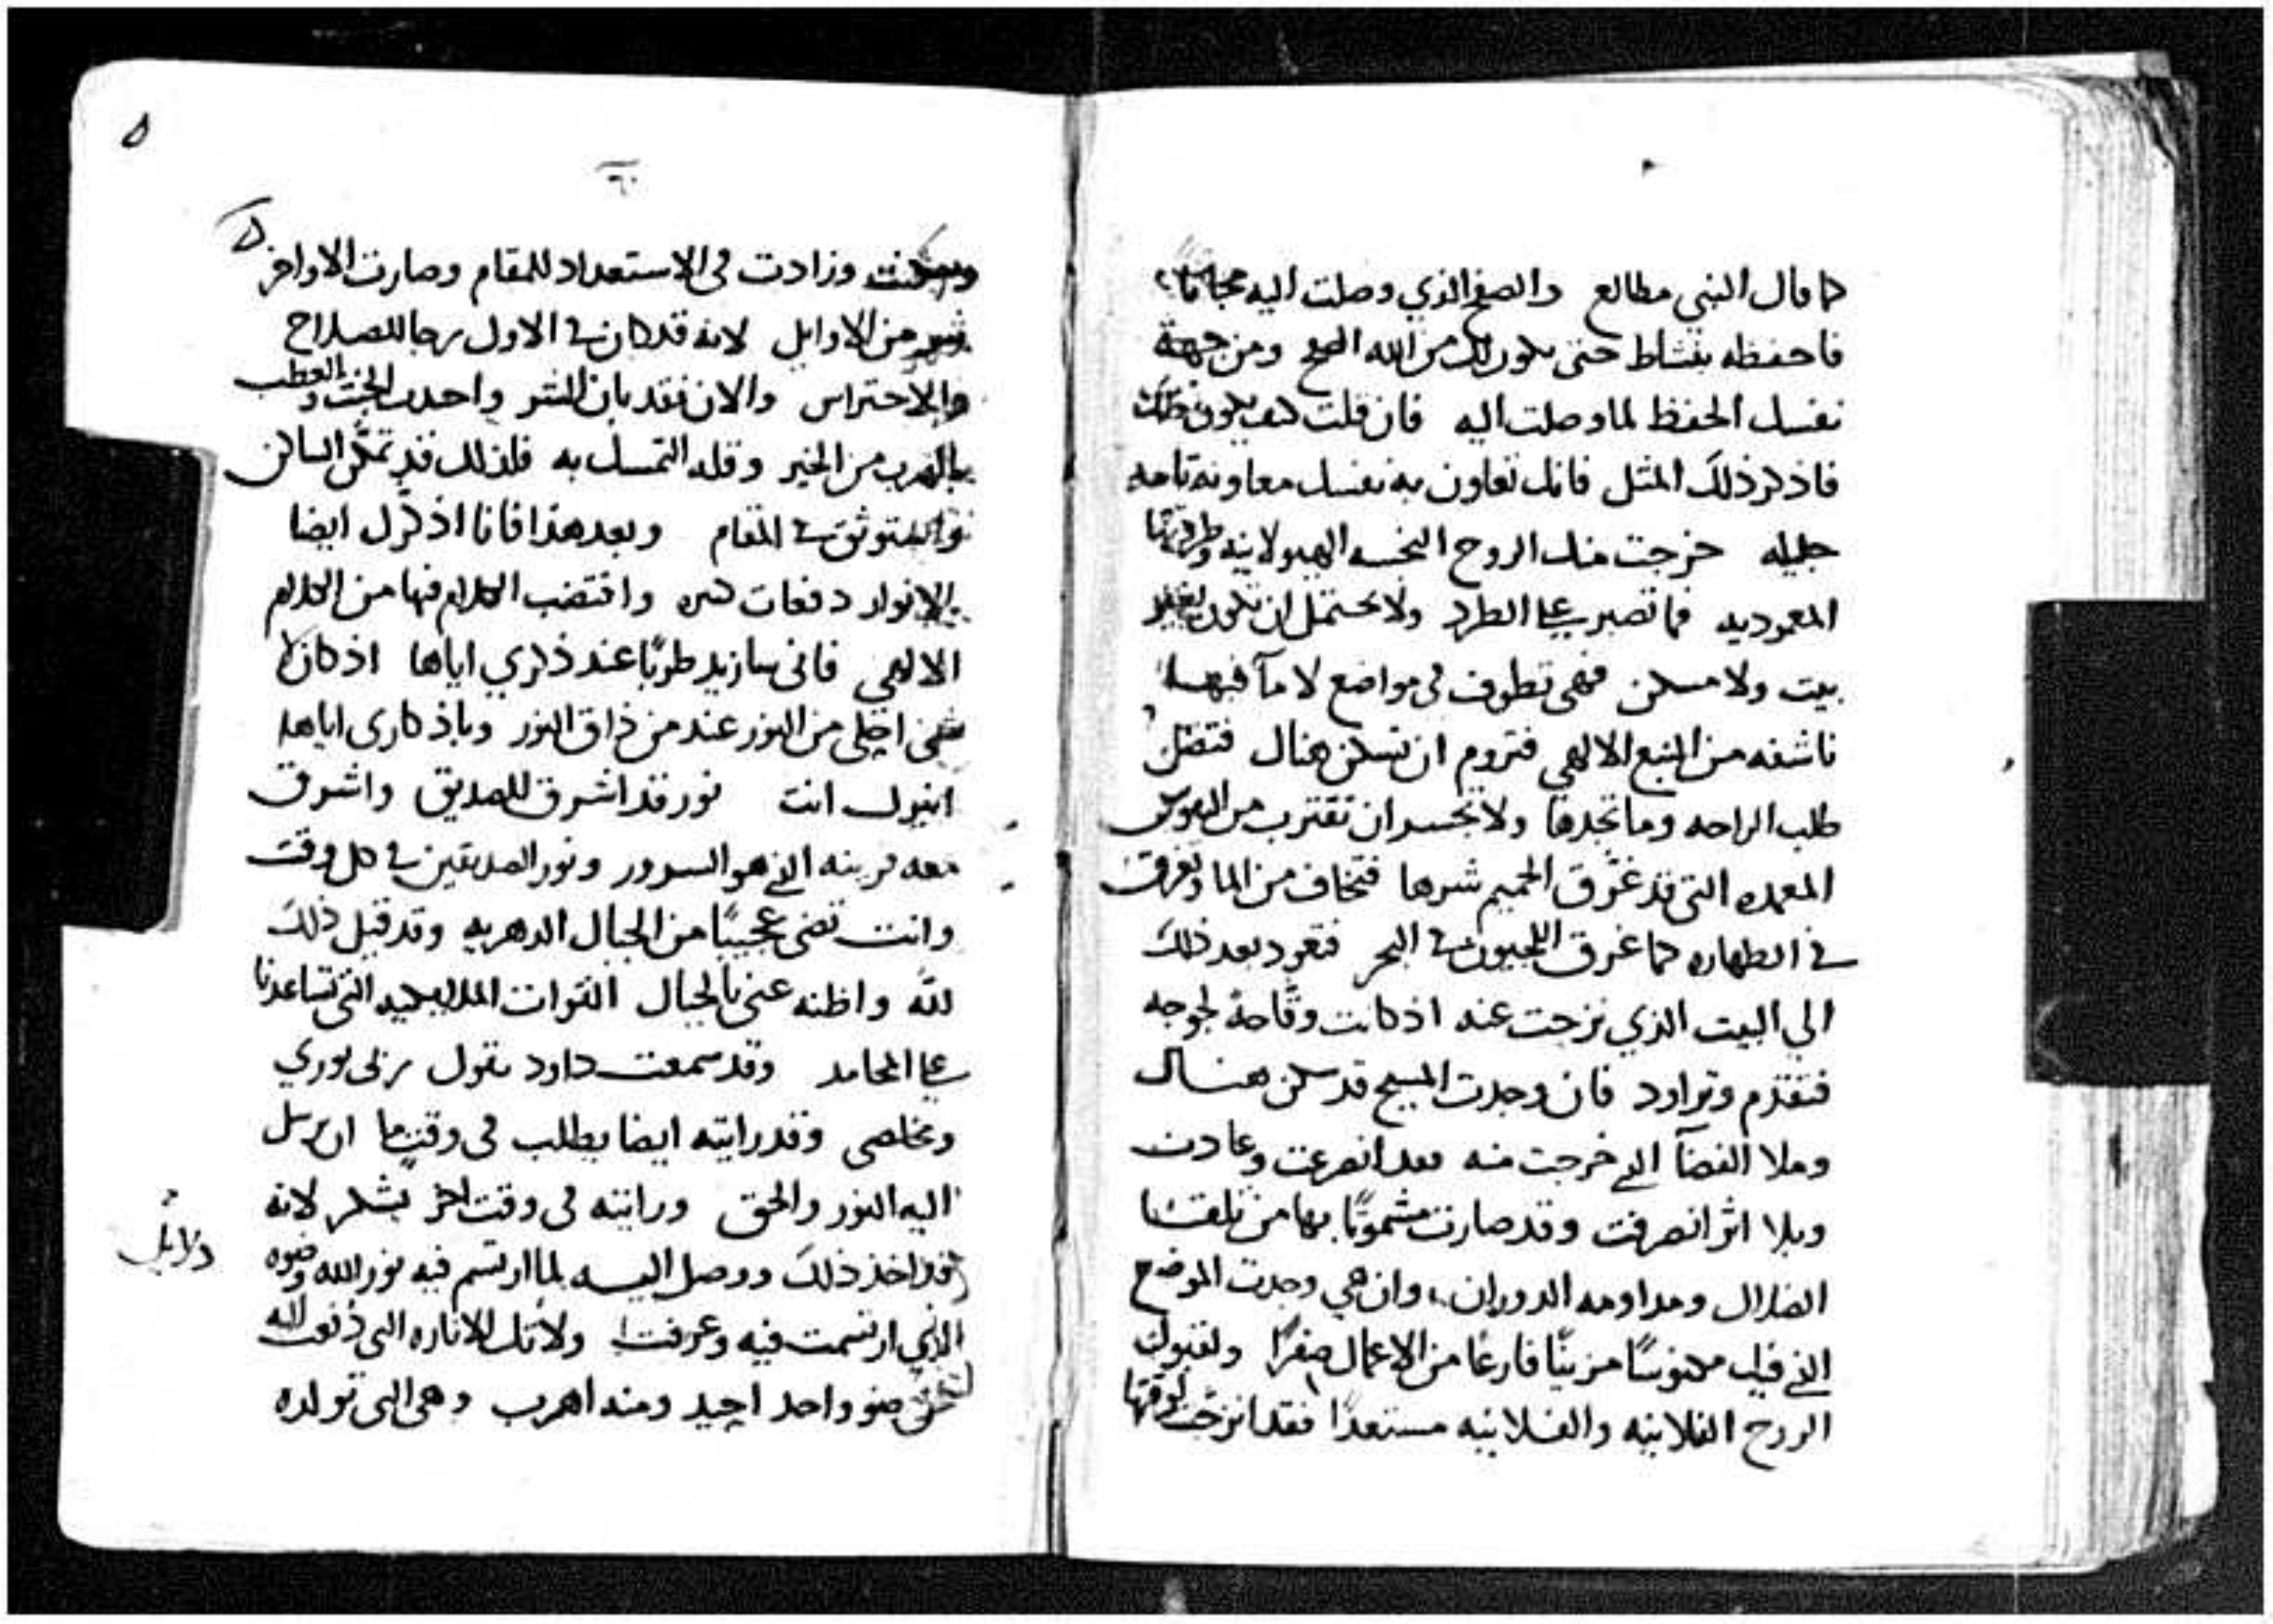 كما قال النبي مطالع والصفح الذي وصلت اليه مجانا
فاحفظه بنشاط حتى يكون لك من الله الصفح ومن جهة
نفسك الحفظ لما وصلت اليه فان قلت كيف يكون ذلك
فاذكر ذلك المثل فانك تعاون به نفسك معاونه تامه
جليله خرجت منك الروح النجسه الهيولانيه وطردتها
المعموديه فما تصبر علي الطرد ولا تحتمل ان تكون بغير
بيت ولا مسكن فهى تطوف فى مواضع لا مآ فيها
ناشفه من النبع الالهي فتروم ان تسكن هناك فتضل
طلب الراحه وما تجدها ولا تجسر ان تقترب من النفوس
المعمده التى قد غرّق الحميم شرها فتخاف من الما وتغرق
في الطهاره كما غرق اللجيون في البحر فتعود بعد ذلك
الي البيت الذي نزحت عنه اذ كانت وقّاحةً لجوجه
فتقدم وتراود فان وجدت المسيح قد سكن هناك
وملا الفضآ الذي خرجت منه فقد انصرعت وعادت
وبلا اثر انصرفت وقد صارت مشموتًا بها من تلقا
الضلال ومداومه الدوران، وان هي وجدت الموضع
الذي فيك مكنوسًا مزينًا فارغًا من الاعمال صفرًا ولقبول
الروح الفلانيه والفلانيه مستعدًا فقد انزجت لوقتها
٥
وسكنت وزادت فى الاستعداد للمقام وصارت الاواخر
شر من الاوايل لانه قد كان في الاول رجا للصلاح
والاحتراس والان فقد بان الشر واجتذب الخبث والعطب
بالهرب من الخير وقله التمسك به فلذلك قد تمكن الساكن
في المقام وبعد هذا فانا اذكرك ايضا
بالانوار دفعات كثيره واقتضب الكلام فيها من الكلام
الالهي فانى سازيد طربًا عند ذكري اياها اذ كان لا
شى احلى من النور عند من ذاق النور وباذكارى اياها
انيرك انت نور قد اشرق للصديق واشرق
معه قرينه الذي هو السرور ونور الصديقين في كل وقت
وانت تضى عجيبًا من الجبال الدهريه وقد قيل ذلك
لله واظنه عنى بالجبال القوات الملايكيه التى تساعدنا
علي المحامد وقد سمعت داود يقول بك نوري
ومخلصى وقد رايته ايضا يطلب فى وقت ما ان يرسل
اليه النور والحق ورايته فى وقت اخر يشكر لانه
قد اخذ ذلك ووصل اليه لما ارتسم فيه نور الله وضوه
الذي ارتسمت فيه وعرفت ولا تلك الاناره التى دفعت لله
ضو واحد احيد ومنه اهرب وهى التى تولده
دلايل